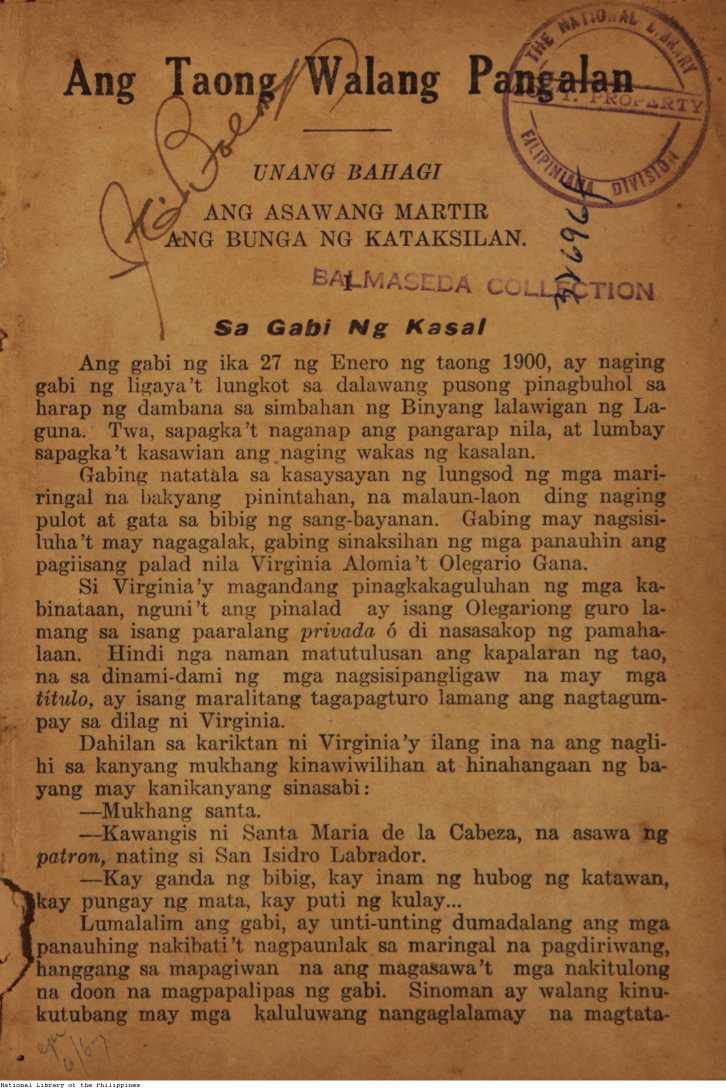 THE NATIONAL LIBRARY
PROPERTY
FILIPINIANA DIVISION
Ang Taong Walang Pangalan
UNANG BAHAGI
ANG ASAWANG MARTIR
ANG BUNGA NG KATAKSILAN.
I
BALMASEDA COLLECTION
Sa Gabi Ng Kasal
Ang gabi ng ika 27 ng Enero ng taong 1900, ay naging
gabi ng ligaya't lungkot sa dalawang pusong pinagbuhol sa
harap ng dambana sa simbahan ng Binyang lalawigan ng La-
guna. Twa, sapagka't naganap ang pangarap nila, at lumbay
sapagka't kasawian ang naging wakas ng kasalan.
Gabing natatala sa kasaysayan ng lungsod ng mga mari-
ringal na bakyang pinintahan, na malaun-laon ding naging
pulot at gata sa bibig ng sang-bayanan. Gabing may nagsisi-
luha't may nagagalak, gabing sinaksihan ng mga panauhin ang
pagiisang palad nila Virginia Alomia't Olegario Gana.
Si Virginia'y magandang pinagkakaguluhan ng mga ka-
binataan, nguni't ang pinalad ay isang Olegariong guro la-
mang sa isang paaralang privada ó di nasasakop ng pamaha-
laan. Hindi nga naman matutulusan ang kapalaran ng tao,
na sa dinami-dami ng mga nagsisipangligaw na may mga
titulo, ay isang maralitang tagapagturo lamang ang nagtagum-
pay sa dilag ni Virginia.
Dahilan sa kariktan ni Virginia'y ilang ina na ang nagli-
hi sa kanyang mukhang kinawiwilihan at hinahangaan ng ba-
yang may kanikanyang sinasabi:
—Mukhang santa.
—Kawangis ni Santa Maria de la Cabeza, na asawa ng
patron, nating si San Isidro Labrador.
—Kay ganda ng bibig, kay inam ng hubog ng katawan,
kay pungay ng mata, kay puti ng kulay...
Lumalalim ang gabi, ay unti-unting dumadalang ang mga
panauhing nakibati't nagpaunlak sa maringal na pagdiriwang,
hanggang sa mapagiwan na ang magasawa't mga nakitulong
na doon na magpapalipas ng gabi. Sinoman ay walang kinu-
kutubang may mga kaluluwang nangaglalamay na magtata-
National Library of the Philippines